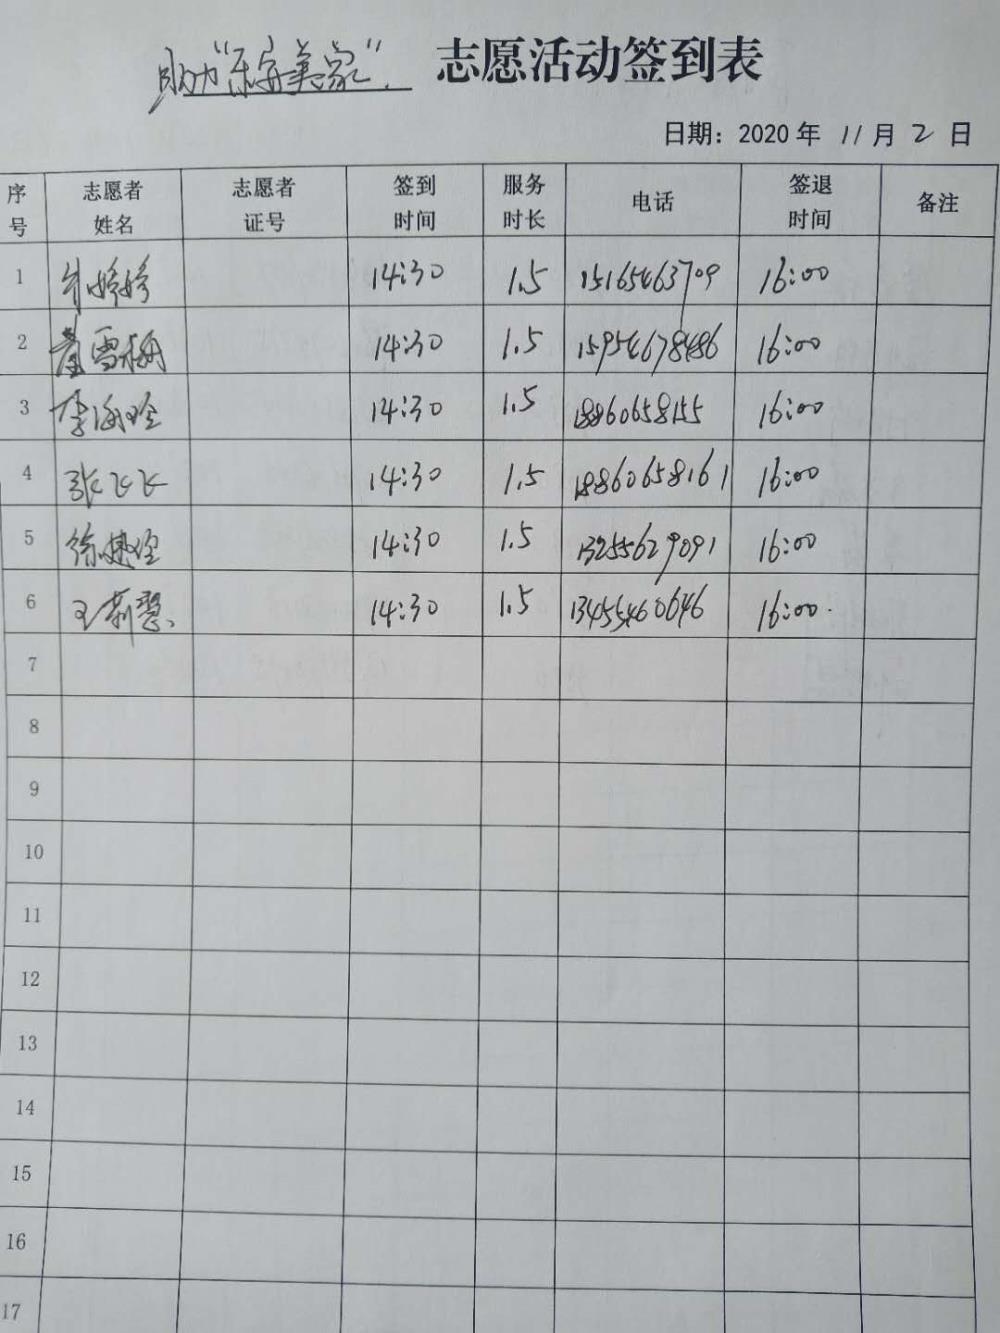 助力"乐安美家" 志愿活动签到表
日期：2020 年 11 月 2 日
序号 志愿者姓名 志愿者证号 签到时间 服务时长 电话 签退时间 备注
1 牟婷婷 14:30 1.5 15165463709 16:00
2 董雪梅 14:30 1.5 15954678486 16:00
3 李海玲 14:30 1.5 18860658155 16:00
4 张飞飞 14:30 1.5 18860658161 16:00
5 徐 14:30 1.5 13255629091 16:00
6 王莉慧 14:30 1.5 13455460646 16:00
7
8
9
10
11
12
13
14
15
16
17